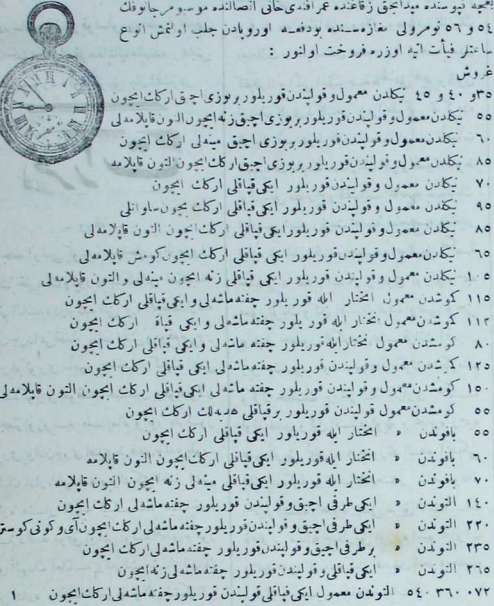 قپوسنده میدانجق زقاغنده عمر افندی خانی اتصالنده موسیو مرجانوفك
٥٤ و ٥٦ نومرولی مغازه‌سنده بودفعه اوروپادن جلب اولنمش انواع
ساعتلر فیأت آتیه اوزره فروخت اولنور :
غروش
٣٥و ٤٠ و ٤٥ نیكلدن معمول و قولپندن قوریلور بر یوزی اچیق اركك ایچون
٥٥ نیكلدن معمول و قولپندن قوریلور بر یوزی اچیق زنه ایچون التون قاپلامه‌لی
٦٠ نیكلدن معمول و قولپندن قوریلور بر یوزی اچیق مینه‌لی اركك ایچون
٨٥ نیكلدن معمول و قولپندن قوریلور بر یوزی اچیق اركك ایچون التون قاپلامه
٧٠ نیكلدن معمول و قولپندن قوریلور ایكی قپاقلی اركك ایچون
٩٥ نیكلدن معمول و قولپندن قوریلور ایكی قپاقلی اركك ایچون ساواتلی
٨٥ نیكلدن معمول و قولپندن قوریلور ایكی قپاقلی اركك ایچون التون قاپلامه‌لی
٦٥ نیكلدن معمول و قولپندن قوریلور ایكی قپاقلی اركك ایچون كومش قاپلامه‌لی
١٠٥ نیكلدن معمول و قولپندن قوریلور ایكی قپاقلی زنه ایچون مینه‌لی و التون قاپلامه‌لی
١١٥ كومشدن معمول انختار ایله قوریلور چفته ماشه‌لی و ایكی قپاقلی اركك ایچون
١١٢ كومشدن معمول انختار ایله قوریلور چفته ماشه‌لی و ایكی قپاق اركك ایچون
٨٠ كومشدن معمول انختار ایله قوریلور چفته ماشه‌لی و ایكی قپاقلی اركك ایچون
١٢٥ كومشدن معمول و قولپندن قوریلور چفته ماشه‌لی ایكی قپاقلی اركك ایچون
١٥٠ كومشدن معمول و قولپندن قوریلور چفته ماشه‌لی ایكی قپاقلی اركك ایچون التون قاپلامه‌لی
٥٥ كومشدن معمول قولپندن قوریلور بر قپاقلی اركك ایچون
٥٥ بافوندن » انختار ایله قوریلور ایكی قپاقلی اركك ایچون
٦٠ بافوندن » انختار ایله قوریلور ایكی قپاقلی اركك ایچون التون قاپلامه
٧٠ بافوندن » انختار ایله قوریلور ایكی قپاقلی مینه‌لی زنه ایچون التون قاپلامه
١٤٠ التوندن » ایكی طرفی اچیق و قولپندن قوریلور چفته ماشه‌لی اركك ایچون
٢٢٠ التوندن » ایكی طرفی اچیق و قولپندن قوریلور چفته ماشه‌لی اركك ایچون آی و كونی كوستر
٢٣٥ التوندن » بر طرفی اچیق و قولپندن قوریلور چفته ماشه‌لی اركك ایچون
٢٦٥ التوندن » ایكی قپاقلی و قولپندن قوریلور چفته ماشه‌لی زنه ایچون
٠٧٢ ٣٦٠ ٥٤٠ التوندن معمول ایكی قپاقلی قولپندن قوریلور چفته ماشه‌لی اركك ایچون ١